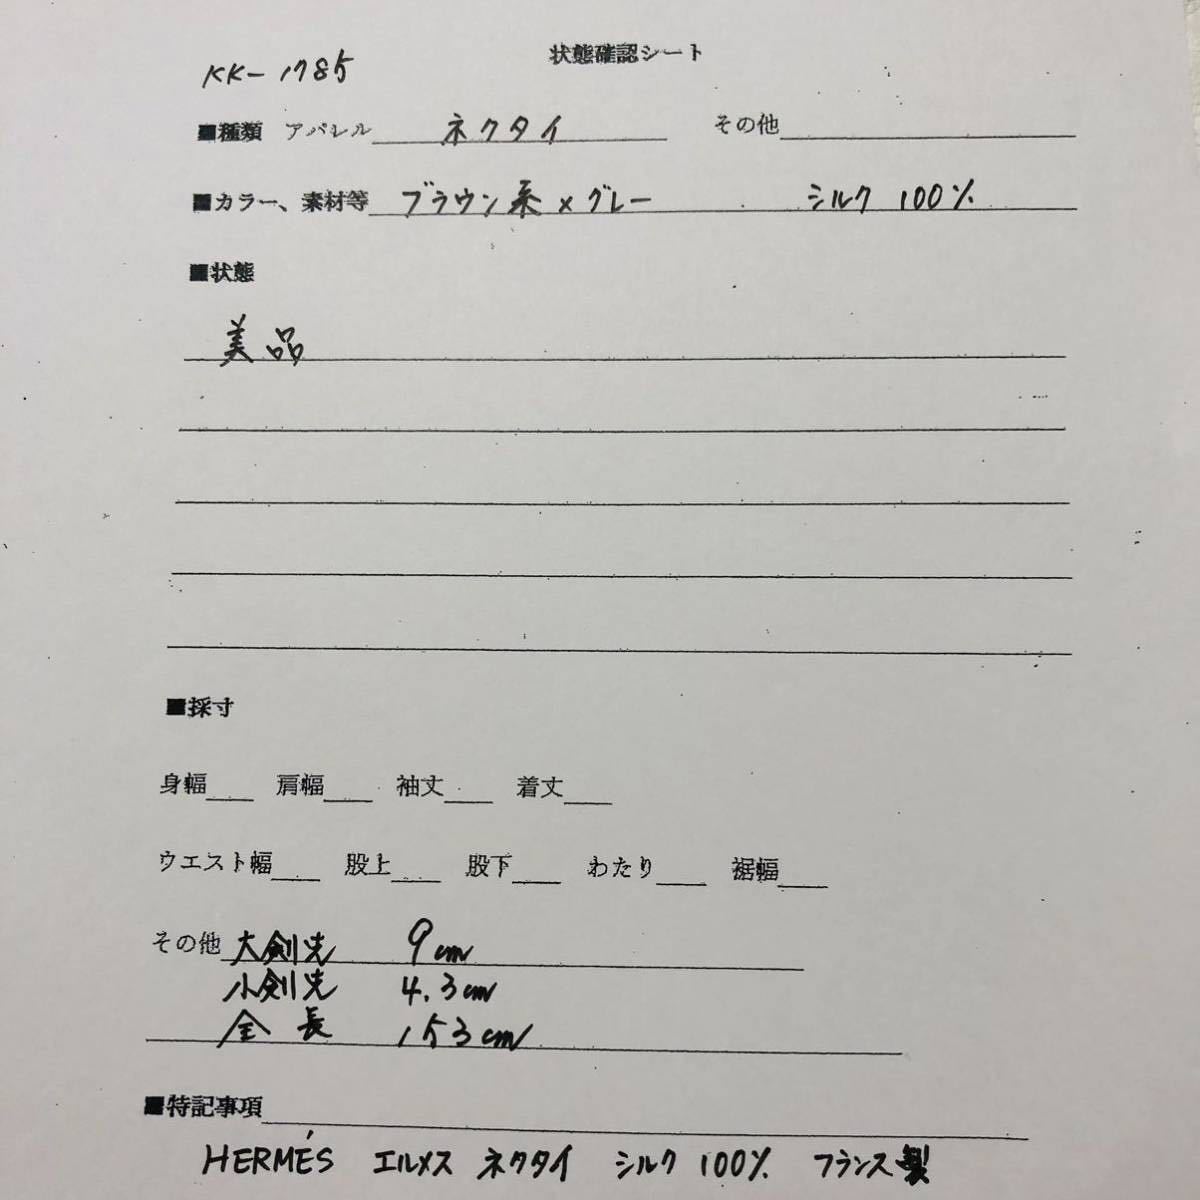 状態確認シート
KK-1785
■種類 アパレル ネクタイ その他
■カラー、素材等 ブラウン系×グレー シルク 100%
■状態
美品
■採寸
身幅 肩幅 袖丈 着丈
ウエスト幅 股上 股下 わたり 裾幅
その他 大剣先 9cm
小剣先 4.3cm
全長 153cm
■特記事項
HERMÉS エルメス ネクタイ シルク 100% フランス製